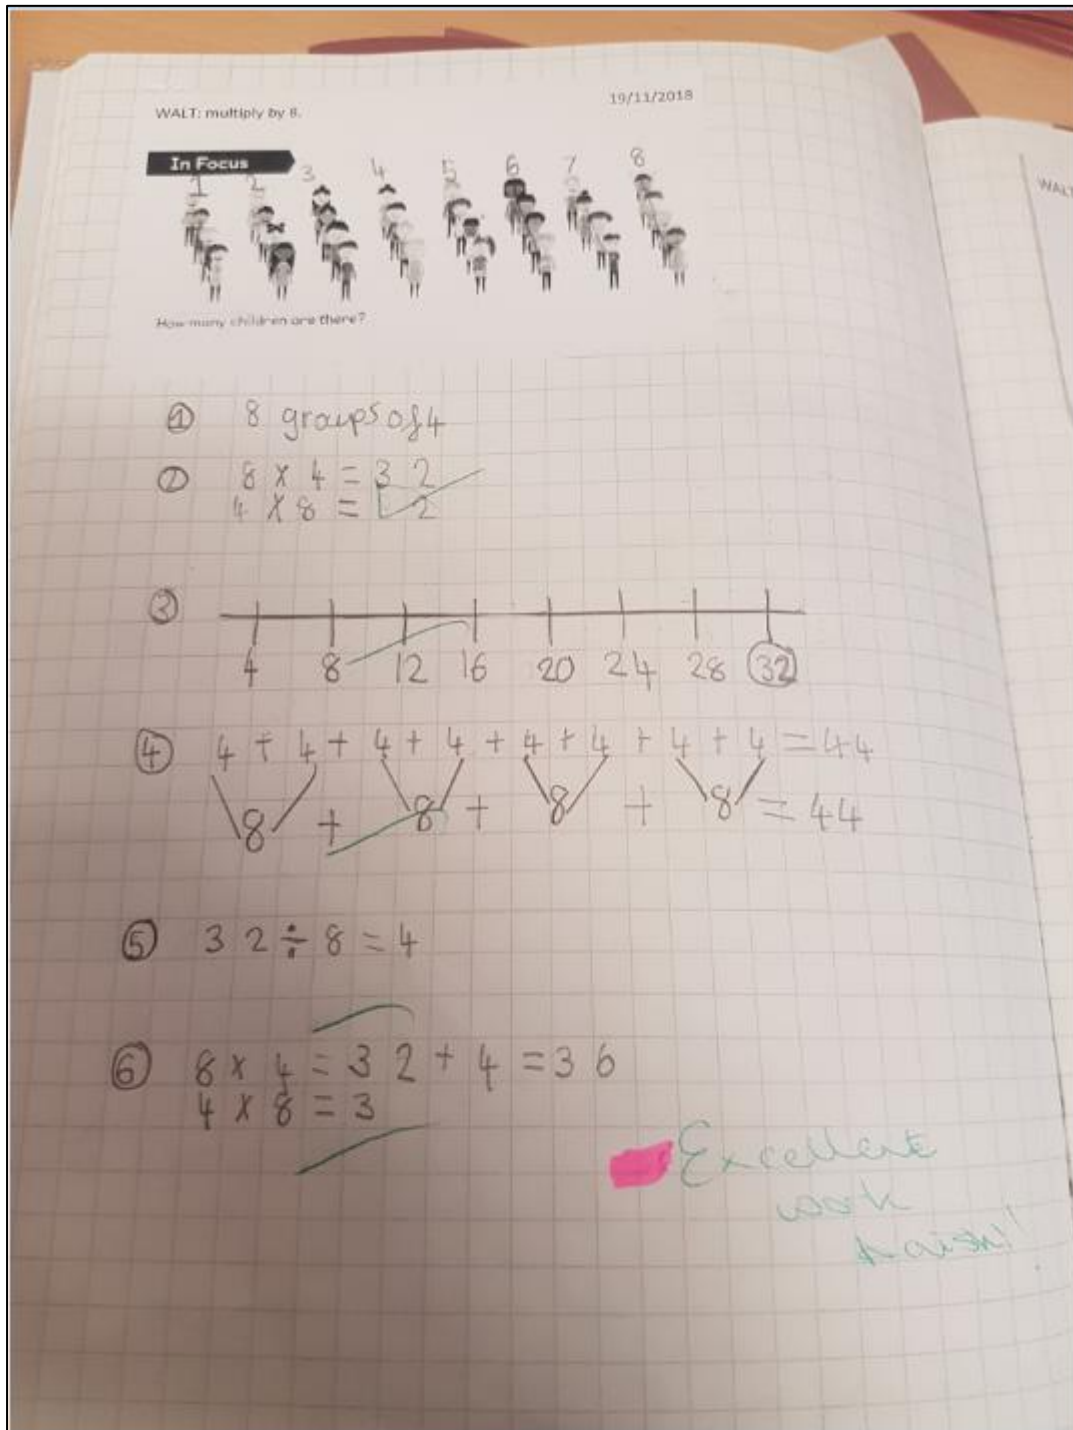 WALT: multiply by 8.
19/11/2018
In Focus
1 2 3 4 5 6 7 8
How many children are there?
① 8 groups of 4
② 8 × 4 = 32
4 × 8 = 2
③
4 8 12 16 20 24 28 32
④ 4 + 4 + 4 + 4 + 4 + 4 + 4 + 4 = 44
8 + 8 + 8 + 8 = 44
⑤ 32 ÷ 8 = 4
⑥ 8 × 4 = 32 + 4 = 36
4 × 8 = 3
Excellent
work
WALT